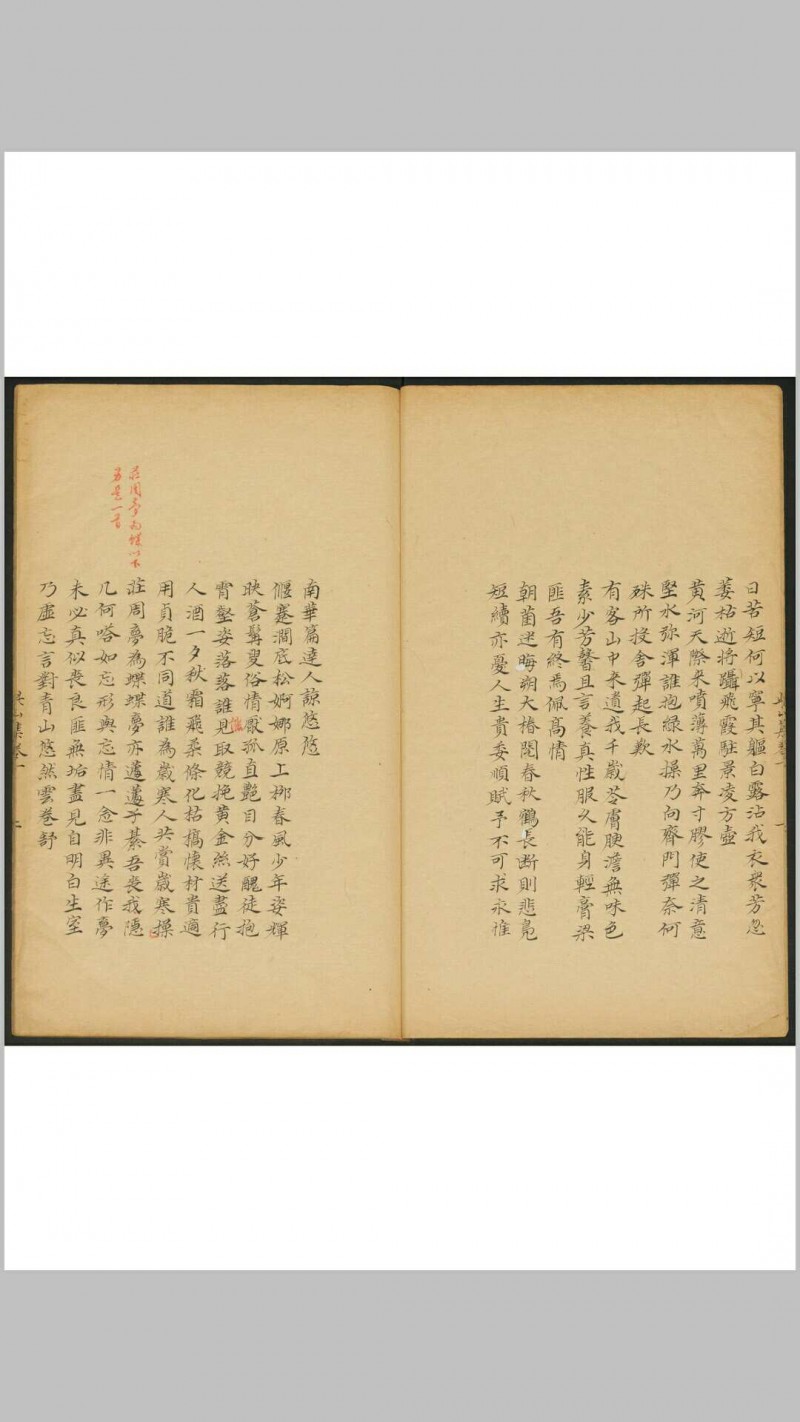 日苦短何以寧其軀白露沾我衣眾芳忽
萎枯逝將躡飛霞駐景凌方壺
黃河天際來噴薄萬里奔寸膠使之清意
堅水弥渾誰抱綠水操乃向齊門彈奈何
殊所投舍彈起長歎
有客山中來遺我千歲苓膚腴澹無味色
素少芳馨且言養真性服久能身輕膏粱
匪吾有終焉佩高情
朝菌迷晦朔大椿閱春秋鶴長断則悲鳧
短續亦憂人生貴委順賦予不可求永誰
南華篇達人諒悠悠
偃蹇澗底松婀娜原上栁春風少年姿輝
映蒼髯叟俗情厭孤直艷目分好醜徒抱
霄壑姿落落誰見取競挽黃金絲送盡行
人酒一夕秋霜飛柔條化枯槁懷材貴適
用貞脆不同道誰為歲寒人共賞歲寒操
莊周夢為蝶蝶夢亦蘧蘧子綦吾喪我隱
几何嗒如忘形與忘情一念非異途作夢
未必真似喪良匪無垢盡見自明白生室
乃虛忘言對青山悠然雲卷舒
莊周夢為蝶以下
另是一首